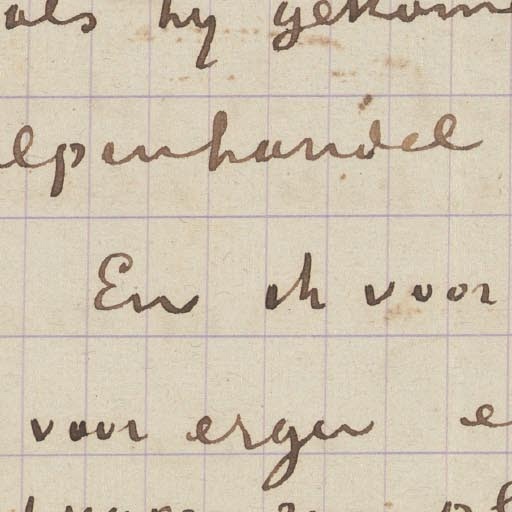 als hy gekom
lpenhandel
En ik voor
voor ergen e